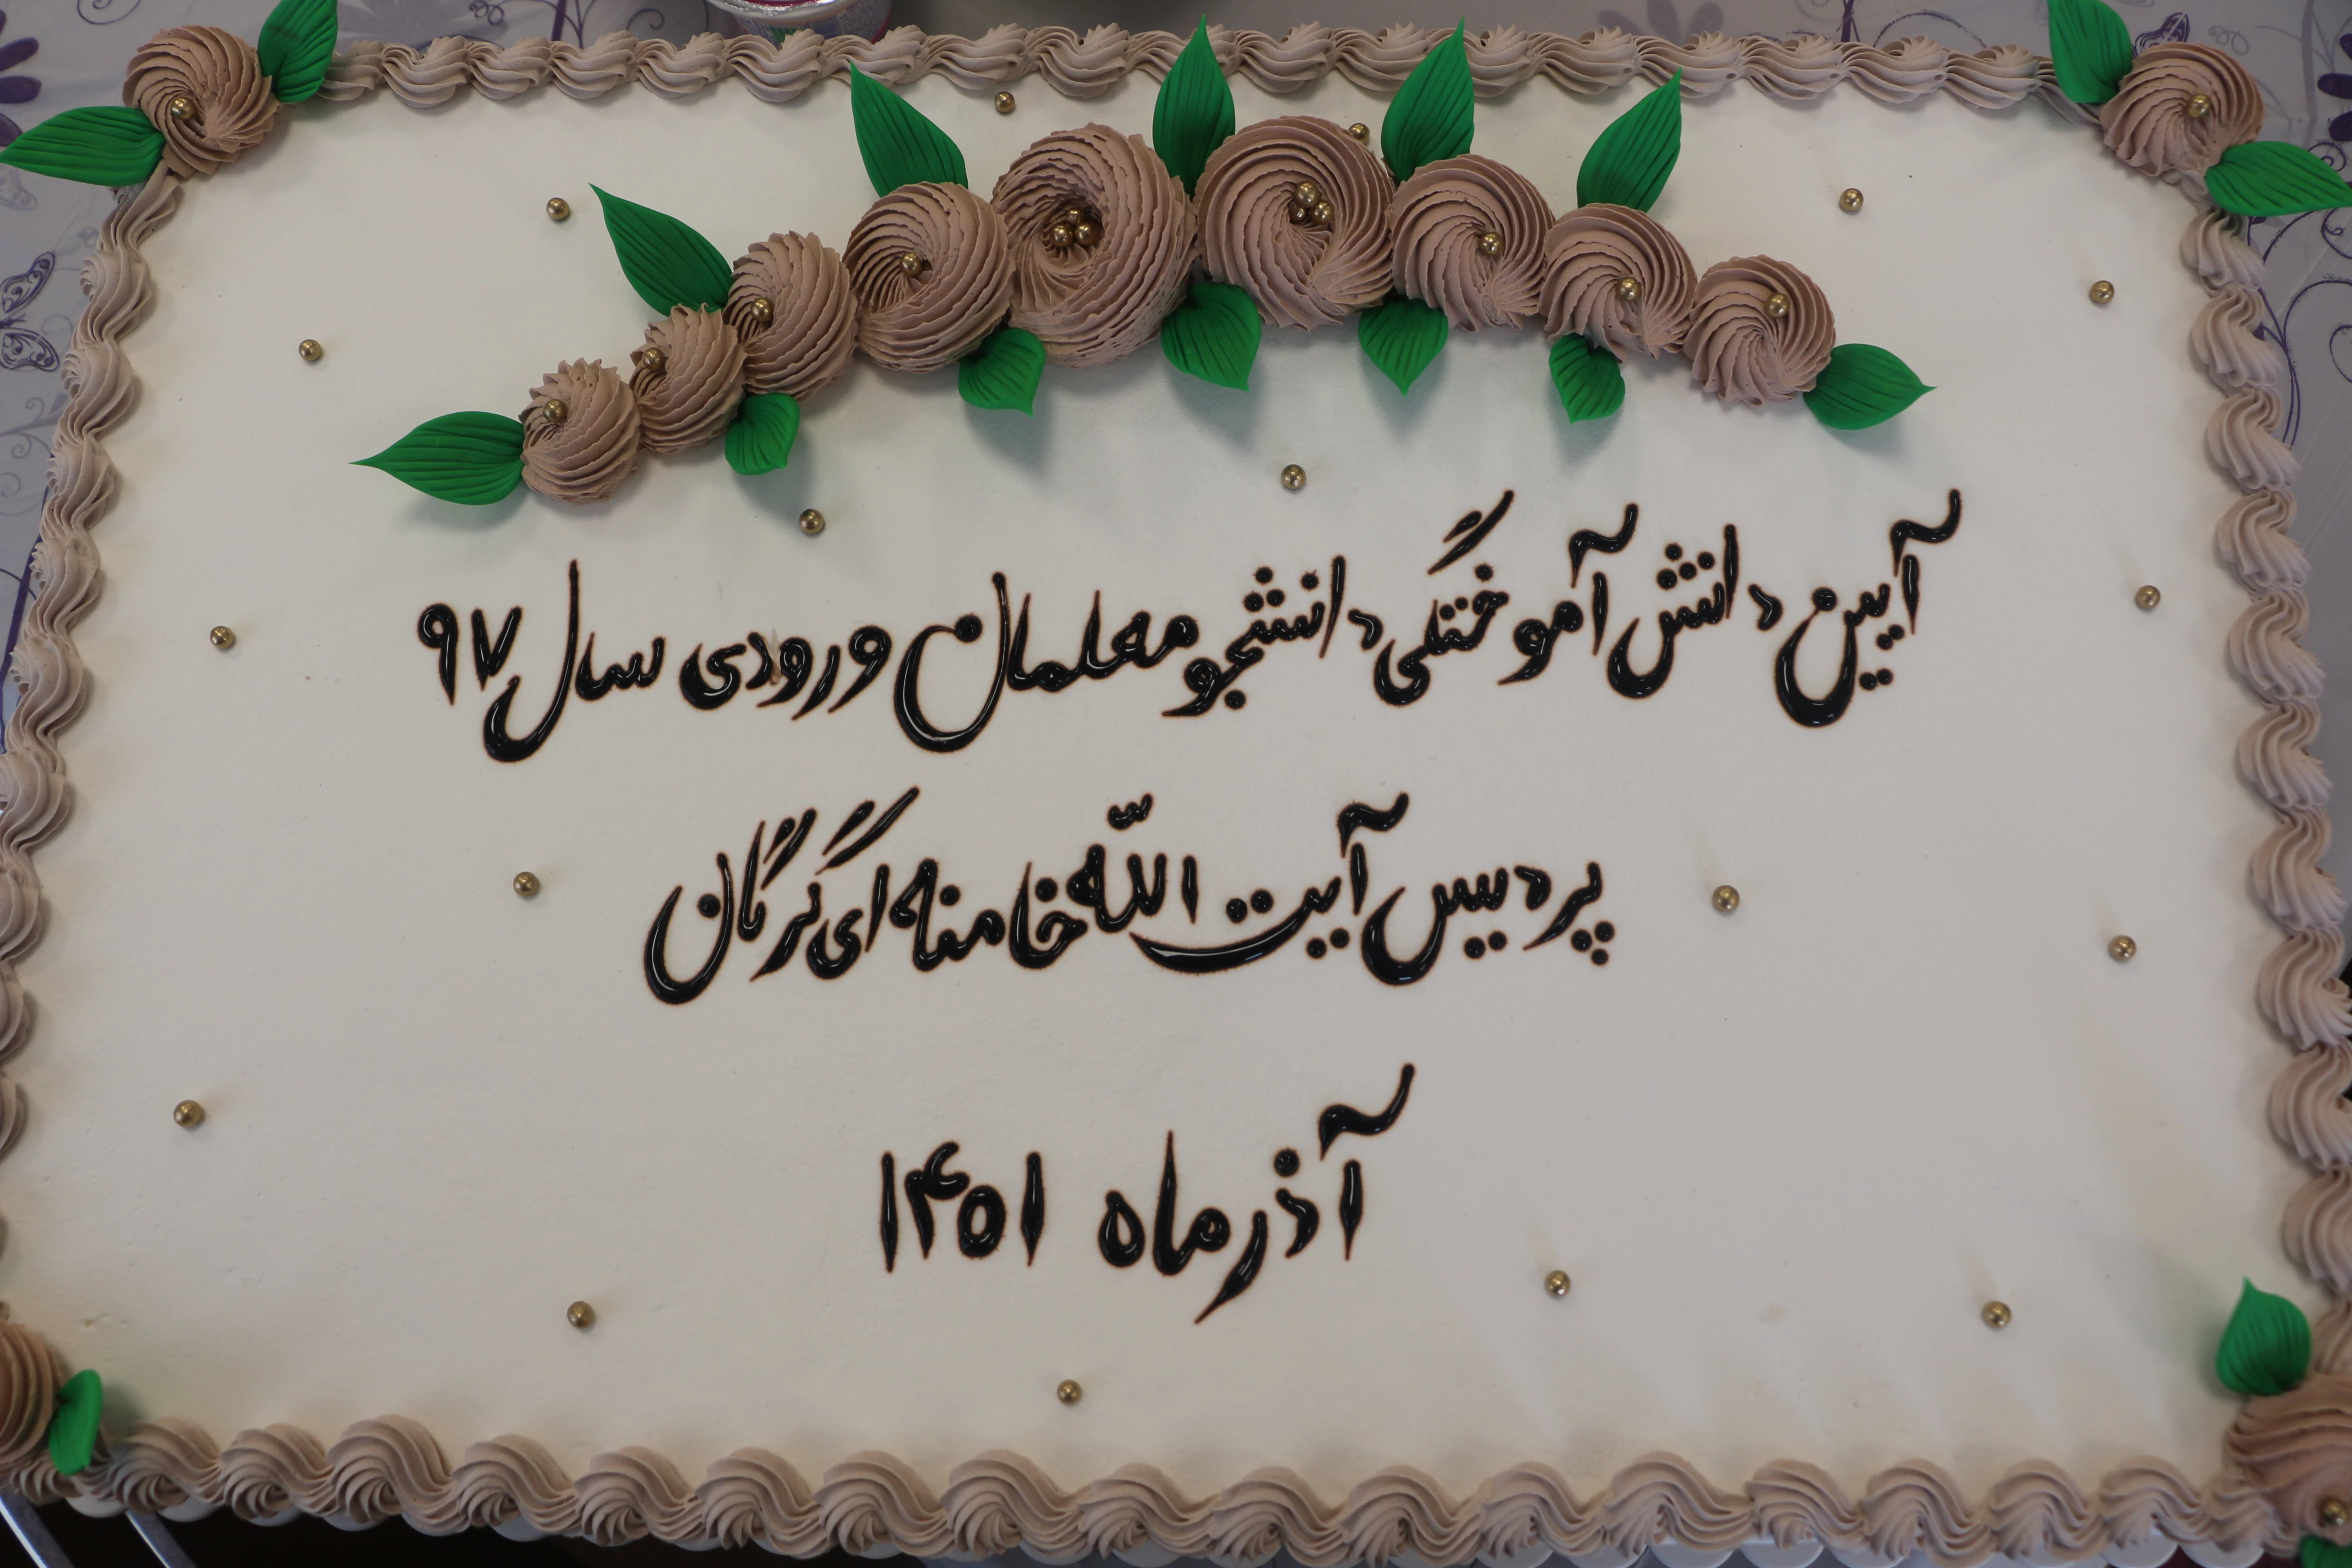 آیین دانش آموختگی دانشجو معلمان ورودی سال ۹۷
پردیس آیت اللّه خامنه ای گرگان
آذر ماه ۱۴۰۱